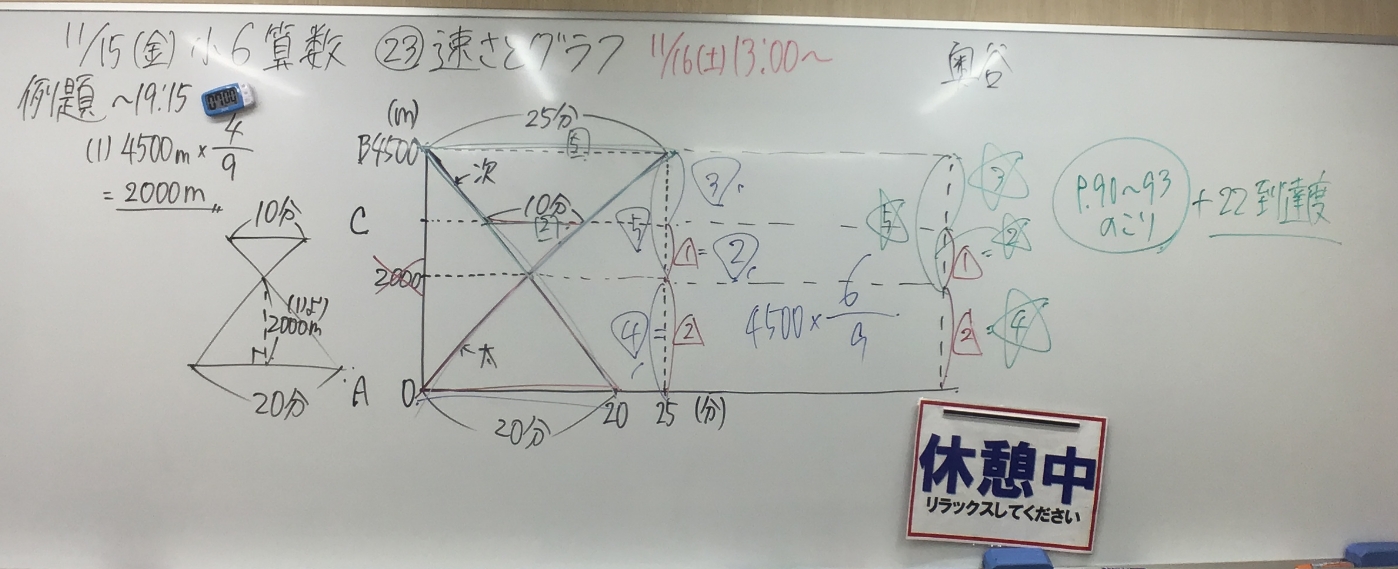 11/15(金)小6算数 ㉓速さとグラフ 11/16(土)13:00〜 奥谷
例題 〜19:15
(1) 4500m × 4/9
= 2000m
10分
(1)より
2000m
20分
(m)
25分
B 4500
5
次
C
10分
2
2000
太
A
0
20分
20
25
(分)
3
5
1 = 2
4 = 2
4500 × 6/9
5
3
1 = 2
2 = 4
P.90〜93
のこり
+ 22到達度
休憩中
リラックスしてください